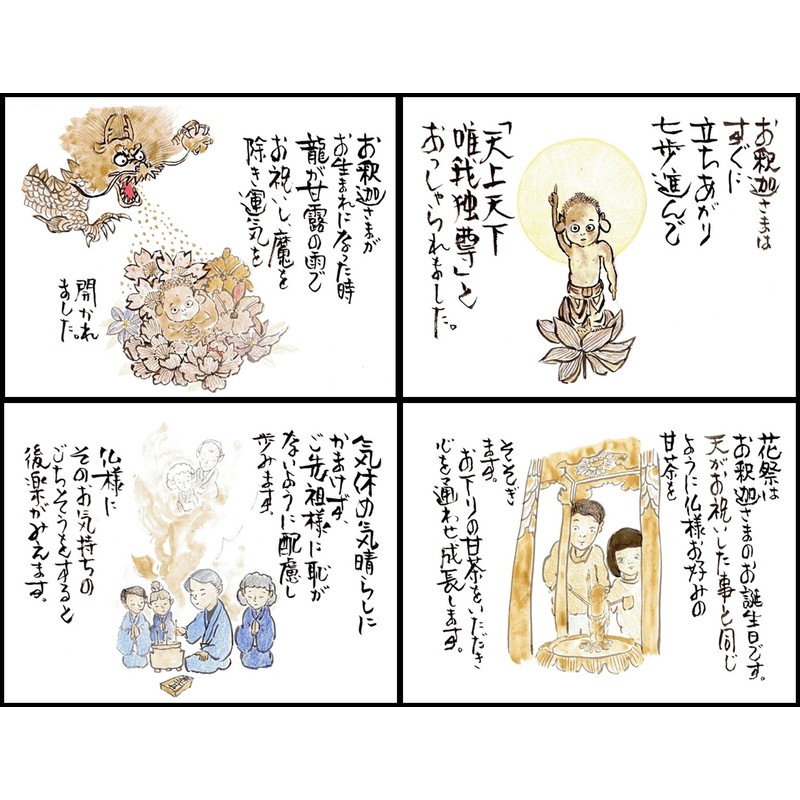 お釈迦さまは
すぐに
立ちあがり
七歩進んで
「天上天下
唯我独尊」と
おっしゃられました。
お釈迦さまが
お生まれになった時
龍が甘露の雨で
お祝いし、魔を
除き運気を
開かれ
ました。
花祭は
お釈迦さまのお誕生日です。
天がお祝いした事と同じ
ように仏様お好みの
甘茶を
そそぎ
ます。
お下りの甘茶をいただき
心を通わせ成長します。
気休め気晴らしに
かまけず、
ご先祖様に恥が
ないように配慮し
歩みます。
仏様に
そのお気持ちの
ごちそうをすると
後楽がみえます。